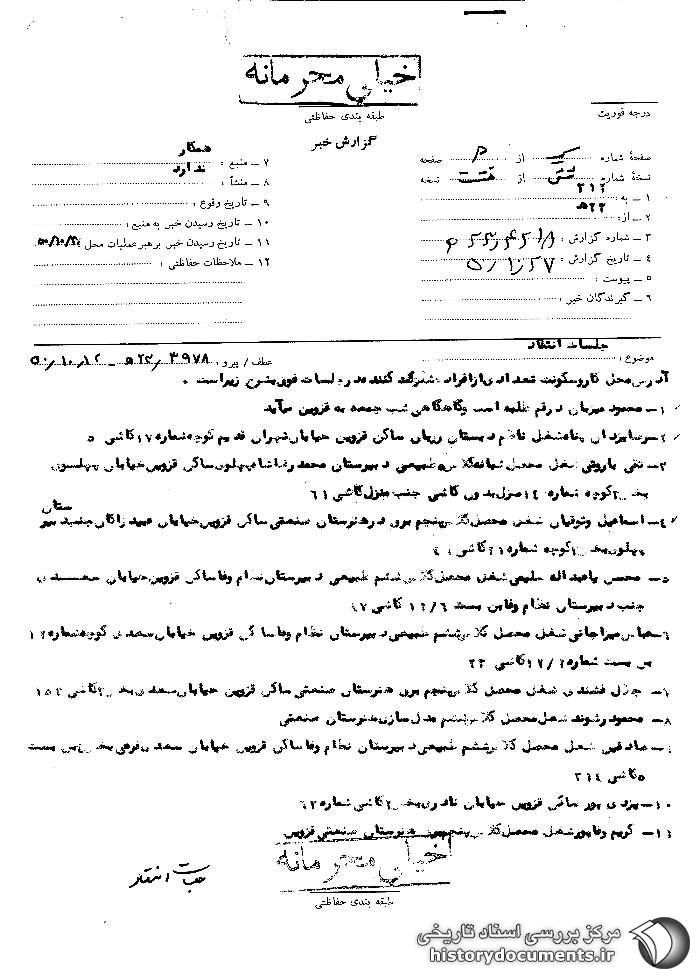 خیلی محرمانه
طبقه بندی حفاظتی
درجه فوریت
گزارش خبر
صفحهٔ شماره یک از ۲ صفحه
نسخهٔ شماره از نسخه
۱ ــ به ۳۱۲
۲ ــ از: ۵۲۲
۳ ــ شماره گزارش:
۴ ــ تاریخ گزارش:
۵ ــ پیوست:
۶ ــ گیرندگان خبر:
۷ ــ منبع: همکار
۸ ــ منشأ: ندارد
۹ ــ تاریخ وقوع:
۱۰ ــ تاریخ رسیدن خبر به منبع:
۱۱ ــ تاریخ رسیدن خبر برهبر عملیات محل
۱۲ ــ ملاحظات حفاظتی:
موضوع: جلسات انتقاد
عطف / پیرو: ۳۹۷۸/۵۲۲ ــ ۵۰/۱۰/۱۲
آدرس محل کار و سکونت تعدادی از افراد شرکت کننده در جلسات فوق بشرح زیر است.
۱ــ محمود میزبان در قم طلبه است و گاهگاهی شب جمعه به قزوین میآید
۲ــ شغل ناظم دبستان ساکن قزوین خیابان تهران قدیم کوچه شماره ۱۷ کاشی ۵
۳ــ تقی شغل محصل شبانه کلاس ۵ طبیعی دبیرستان محمدرضا شاه پهلوی ساکن قزوین خیابان پهلوی
بخش ۲ کوچه شماره ۱۴ منزل بدون کاشی جنب منزل کاشی ۶۱
۴ــ اسماعیل وثوقیان شغل محصل کلاس پنجم برق در هنرستان صنعتی ساکن قزوین خیابان عبید زاکان جنب دبیرستان
پهلوی بخش کوچه شماره ۲۱ کاشی
۵ــ محسن یا عبداله سلیمی شغل محصل کلاس ششم طبیعی دبیرستان نظام وفا ساکن قزوین خیابان سعدی
جنب دبیرستان نظام وفا بن بست ۱۲/۶ کاشی ۹۷
۶ــ عباس میراجانی شغل محصل کلاس ششم طبیعی دبیرستان نظام وفا ساکن قزوین خیابان سعدی کوچه شماره ۱۲
بن بست شماره ۱۲/۲ کاشی ۲۳
۷ــ جلال فشندی شغل محصل کلاس پنجم برق هنرستان صنعتی ساکن قزوین خیابان سعدی بخش ۲ کاشی ۱۵۲
۸ــ محمود رشوند شغل محصل کلاس ششم مدل سازی هنرستان صنعتی
۹ــ صادقی شغل محصل کلاس ششم طبیعی دبیرستان نظام وفا ساکن قزوین خیابان سعدی فرعی بخش بن بست
۵ کاشی ۲۱۴
۱۰ــ یزدی پور ساکن قزوین خیابان نادری بخش ۲ کاشی شماره ۶۲
۱۱ــ کریم وفاپور شغل محصل کلاس پنجم هنرستان صنعتی قزوین
خیلی محرمانه
طبقه بندی حفاظتی
جلسات انتقاد
مرکز بررسی اسناد تاریخی
historydocuments.ir